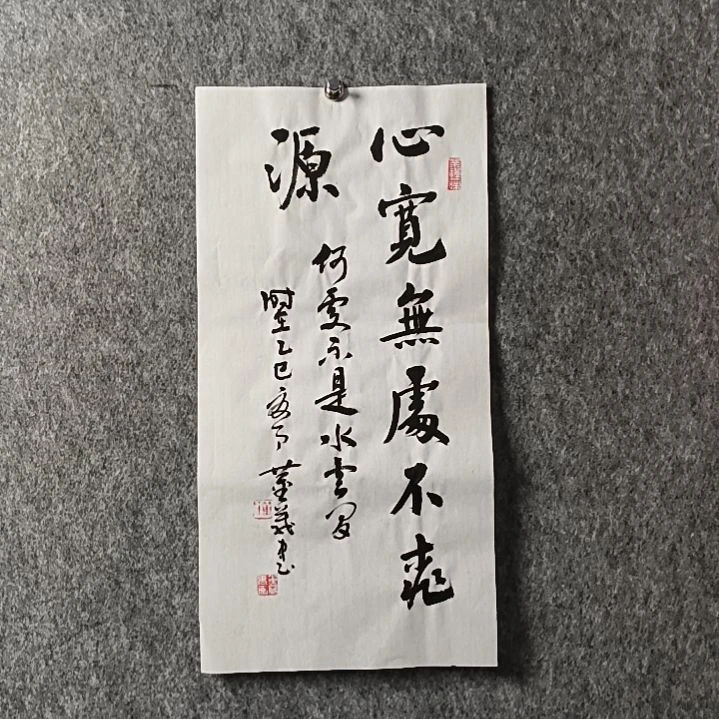 心寬無處不桃
源
何處不是水雲間
时在乙巳夏月